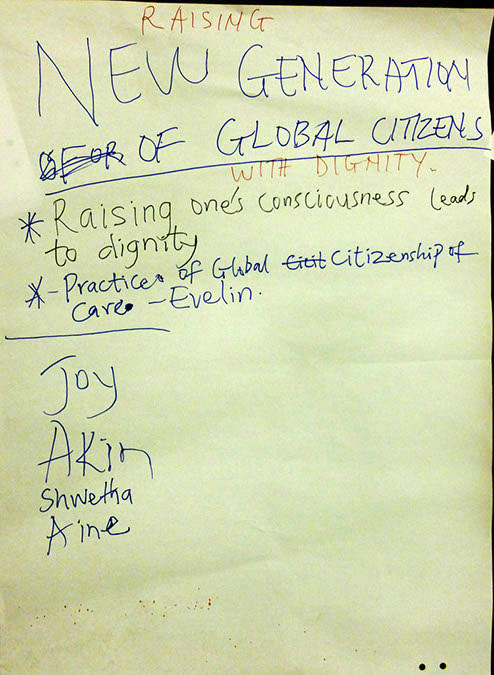 RAISING
NEW GENERATION
OF GLOBAL CITIZENS
WITH DIGNITY.
* Raising one's consciousness leads
to dignity
* - Practice of Global Citizenship of
Care - Evelin.
Joy
Akin
Shwetha
Aine